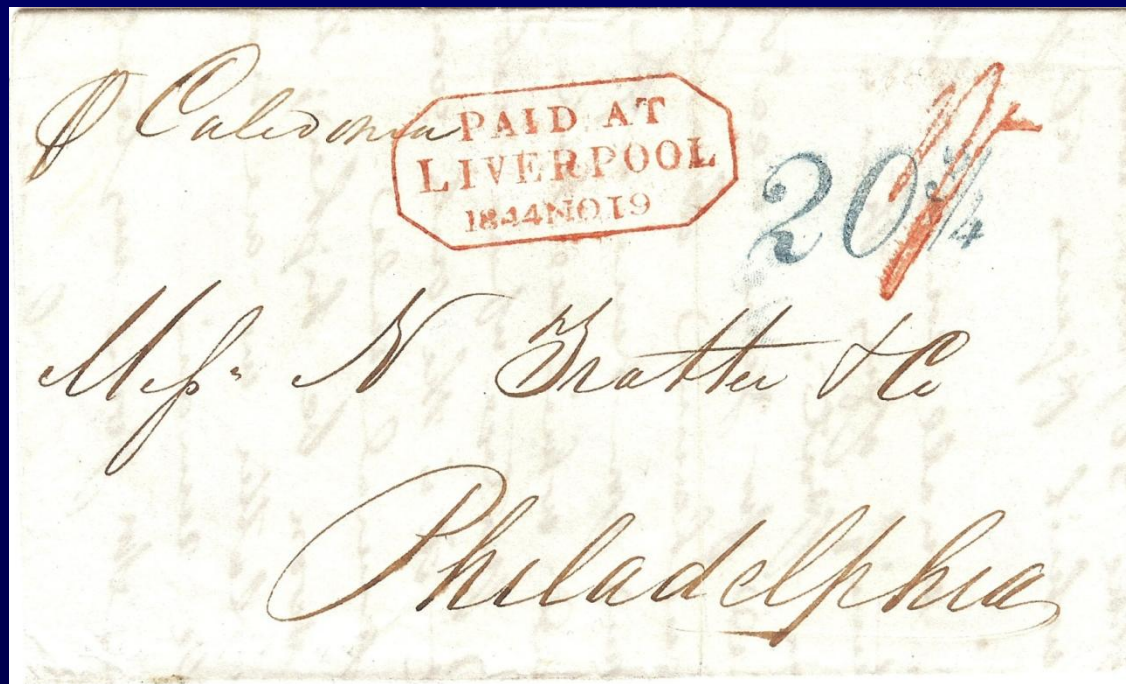 ⅌ Caledonia
PAID AT
LIVERPOOL
1844NO19
1/-
20¾
Messrs N Trotter & Co
Philadelphia